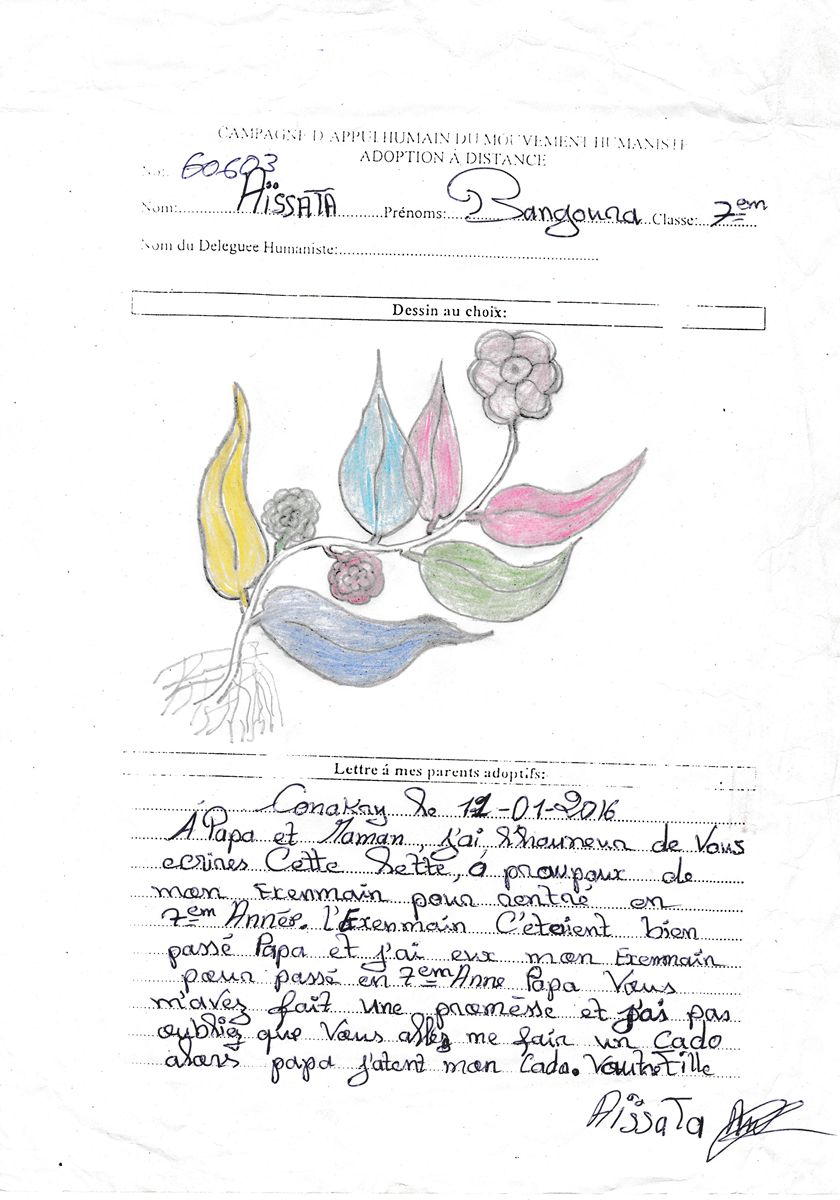 CAMPAGNE D'APPUI HUMAIN DU MOUVEMENT HUMANISTE
ADOPTION À DISTANCE
No: 60603
Nom: AÏSSATA Prénoms: Bangoura Classe: 7em
Nom du Deleguee Humaniste:
Dessin au choix:
Lettre á mes parents adoptifs:
Conakry le 11-01-2016
Á Papa et Maman, j'ai l'honneur de Vous
ecrires Cette lettre, á proupoux de
mon Exenmain pour rentré en
7em Année. l'Exenmain C'etaient bien
passé Papa et j'ai eux mon Exemmain
pour passé en 7em Anne Papa Vous
m'avez fait Une promèsse et j'ai pas
oubliez que Vous allez me fair un Cado
alors papa j'atent mon Cado. Vautre Fille
AïssaTa